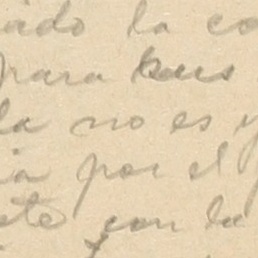 ado la co
para
la no es y
ia por el
ste con la